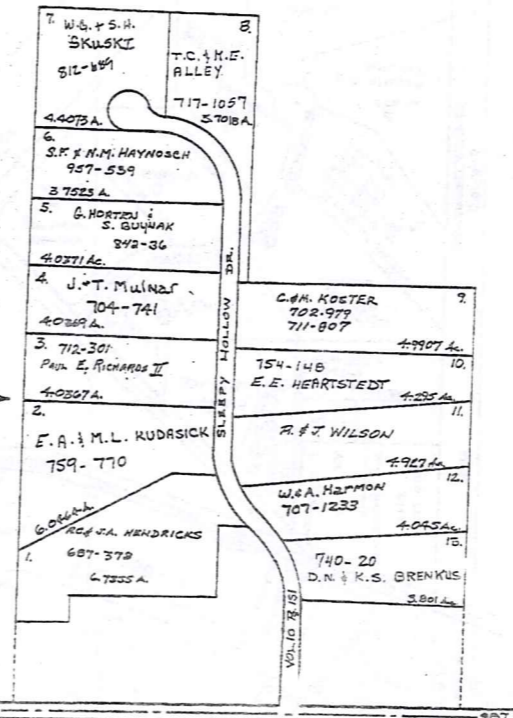 7. W.G. & S.H.
SKUSKI
812-689
4.4073 A.
8.
T.C. & K.E.
ALLEY
717-1057
3.7018 A.
6.
S.F. & N.M. HAYNOSCH
957-539
3.7523 A.
5. G. HORTEN &
S. BUYNAK
842-36
4.0371 Ac.
4. J. & T. Mulnar
704-741
4.0369 A.
3. 712-301
PAUL E. RICHARDS II
4.0367 A.
2.
E.A. & M.L. KUDASICK
759-770
1.
R.C. & J.A. HENDRICKS
687-372
6.7355 A.
SLEEPY HOLLOW DR.
VOL. 10 Pg. 151
C. & M. KOSTER
9.
702-979
711-807
4.9907 Ac.
10.
754-148
E.E. HEARTSTEDT
4.295 Ac.
11.
R. & J. WILSON
4.927 Ac.
12.
W. & A. HARMON
707-1233
4.045 Ac.
13.
740-20
D.N. & K.S. BRENKUS
3.801 Ac.